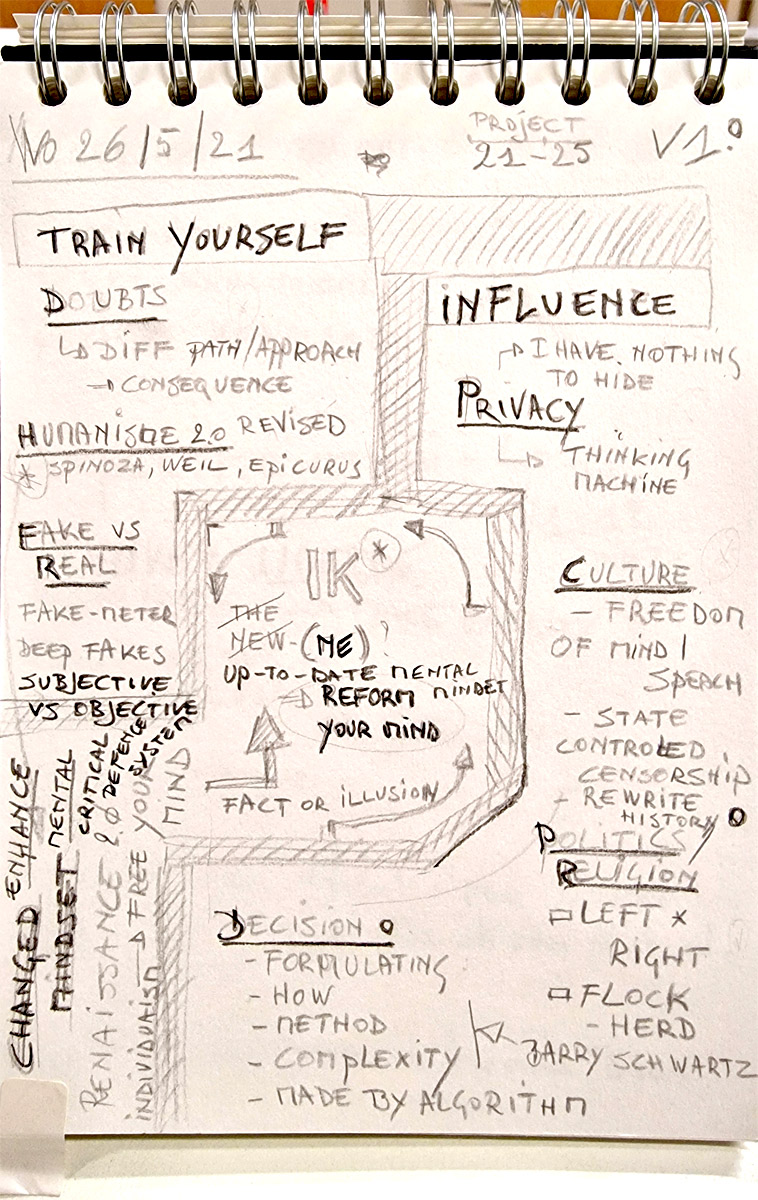 Wo 26/5/21
PROJECT
21-25
V1.0
TRAIN YOURSELF
DOUBTS
↳ DIFF PATH/APPROACH
→ CONSEQUENCE
HUMANISME 2.0 REVISED
* SPINOZA, WEIL, EPICURUS
FAKE VS
REAL
FAKE-METER
DEEP FAKES
SUBJECTIVE
VS OBJECTIVE
INFLUENCE
I HAVE NOTHING
TO HIDE
PRIVACY
THINKING
MACHINE
IK *
THE
NEW-(ME)?
UP-TO-DATE MENTAL
MINDET
→ REFORM
YOUR MIND
FACT OR ILLUSION
CULTURE
- FREEDOM
OF MIND/
SPEACH
- STATE
CONTROLED
CENSORSHIP
- REWRITE
HISTORY
POLITICS/
RELIGION
LEFT *
RIGHT
FLOCK
- HERD
BARRY SCHWARTZ
DECISION
- FORMULATING
- HOW
- METHOD
- COMPLEXITY
- MADE BY ALGORITHM
CHANGED
ENHANCE
MINDSET MENTAL
CRITICAL
DEFENCE
SYSTEME
RENAISSANCE 2.0
→ FREE YOUR
MIND
INDIVIDUAISM